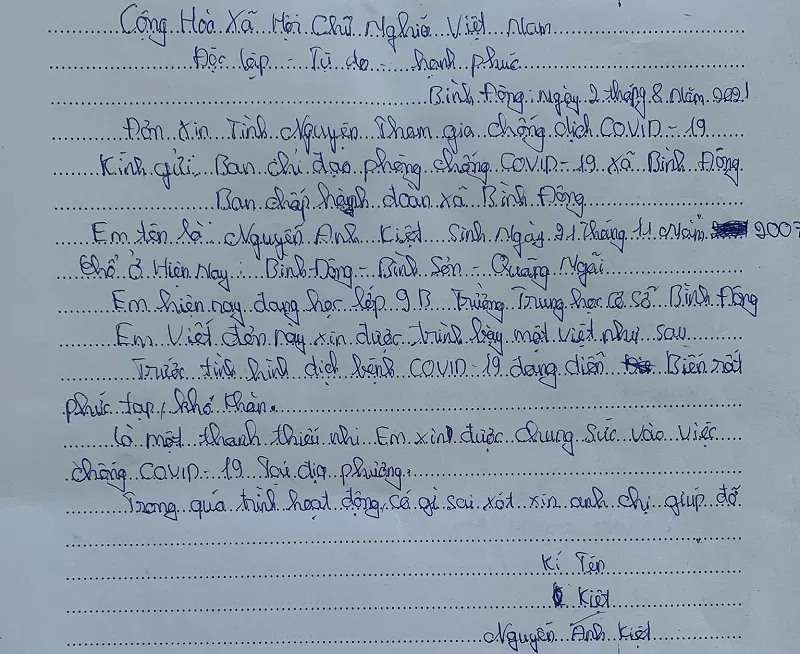 Cộng Hoà Xã Hội Chữ Nghiã Việt Nam
Độc lập - Tự do - hạnh phúc
Bình Đông, Ngày 2 tháng 8 Năm 2021
Đơn xin Tình Nguyện Tham gia chống dịch COVID-19
Kính gửi: Ban chỉ đạo phòng chống COVID-19 xã Bình Đông
Ban chấp hành đoàn xã Bình Đông
Em tên là Nguyễn Anh Kiệt Sinh Ngày 21 Tháng 11 Năm 2007
Chổ ở Hiện Nay: Bình Đông - Bình Sơn - Quãng Ngãi
Em hiện nay đang học lớp 9B Trường Trung học cơ sở Bình Đông
Em Viết đơn này xin được trình bày một việt như sau
Trước tình hình dịch bệnh COVID-19 đang diễn Biến rất
phức tạp, khó khăn.
là một thanh thiếu nhi Em xin được chung sức vào việc
chống COVID-19 Tại địa phương.
Trong quá trình hoạt động có gì sai xót xin anh chị giúp đỡ
Kí Tên
Kiệt
Nguyễn Anh Kiệt